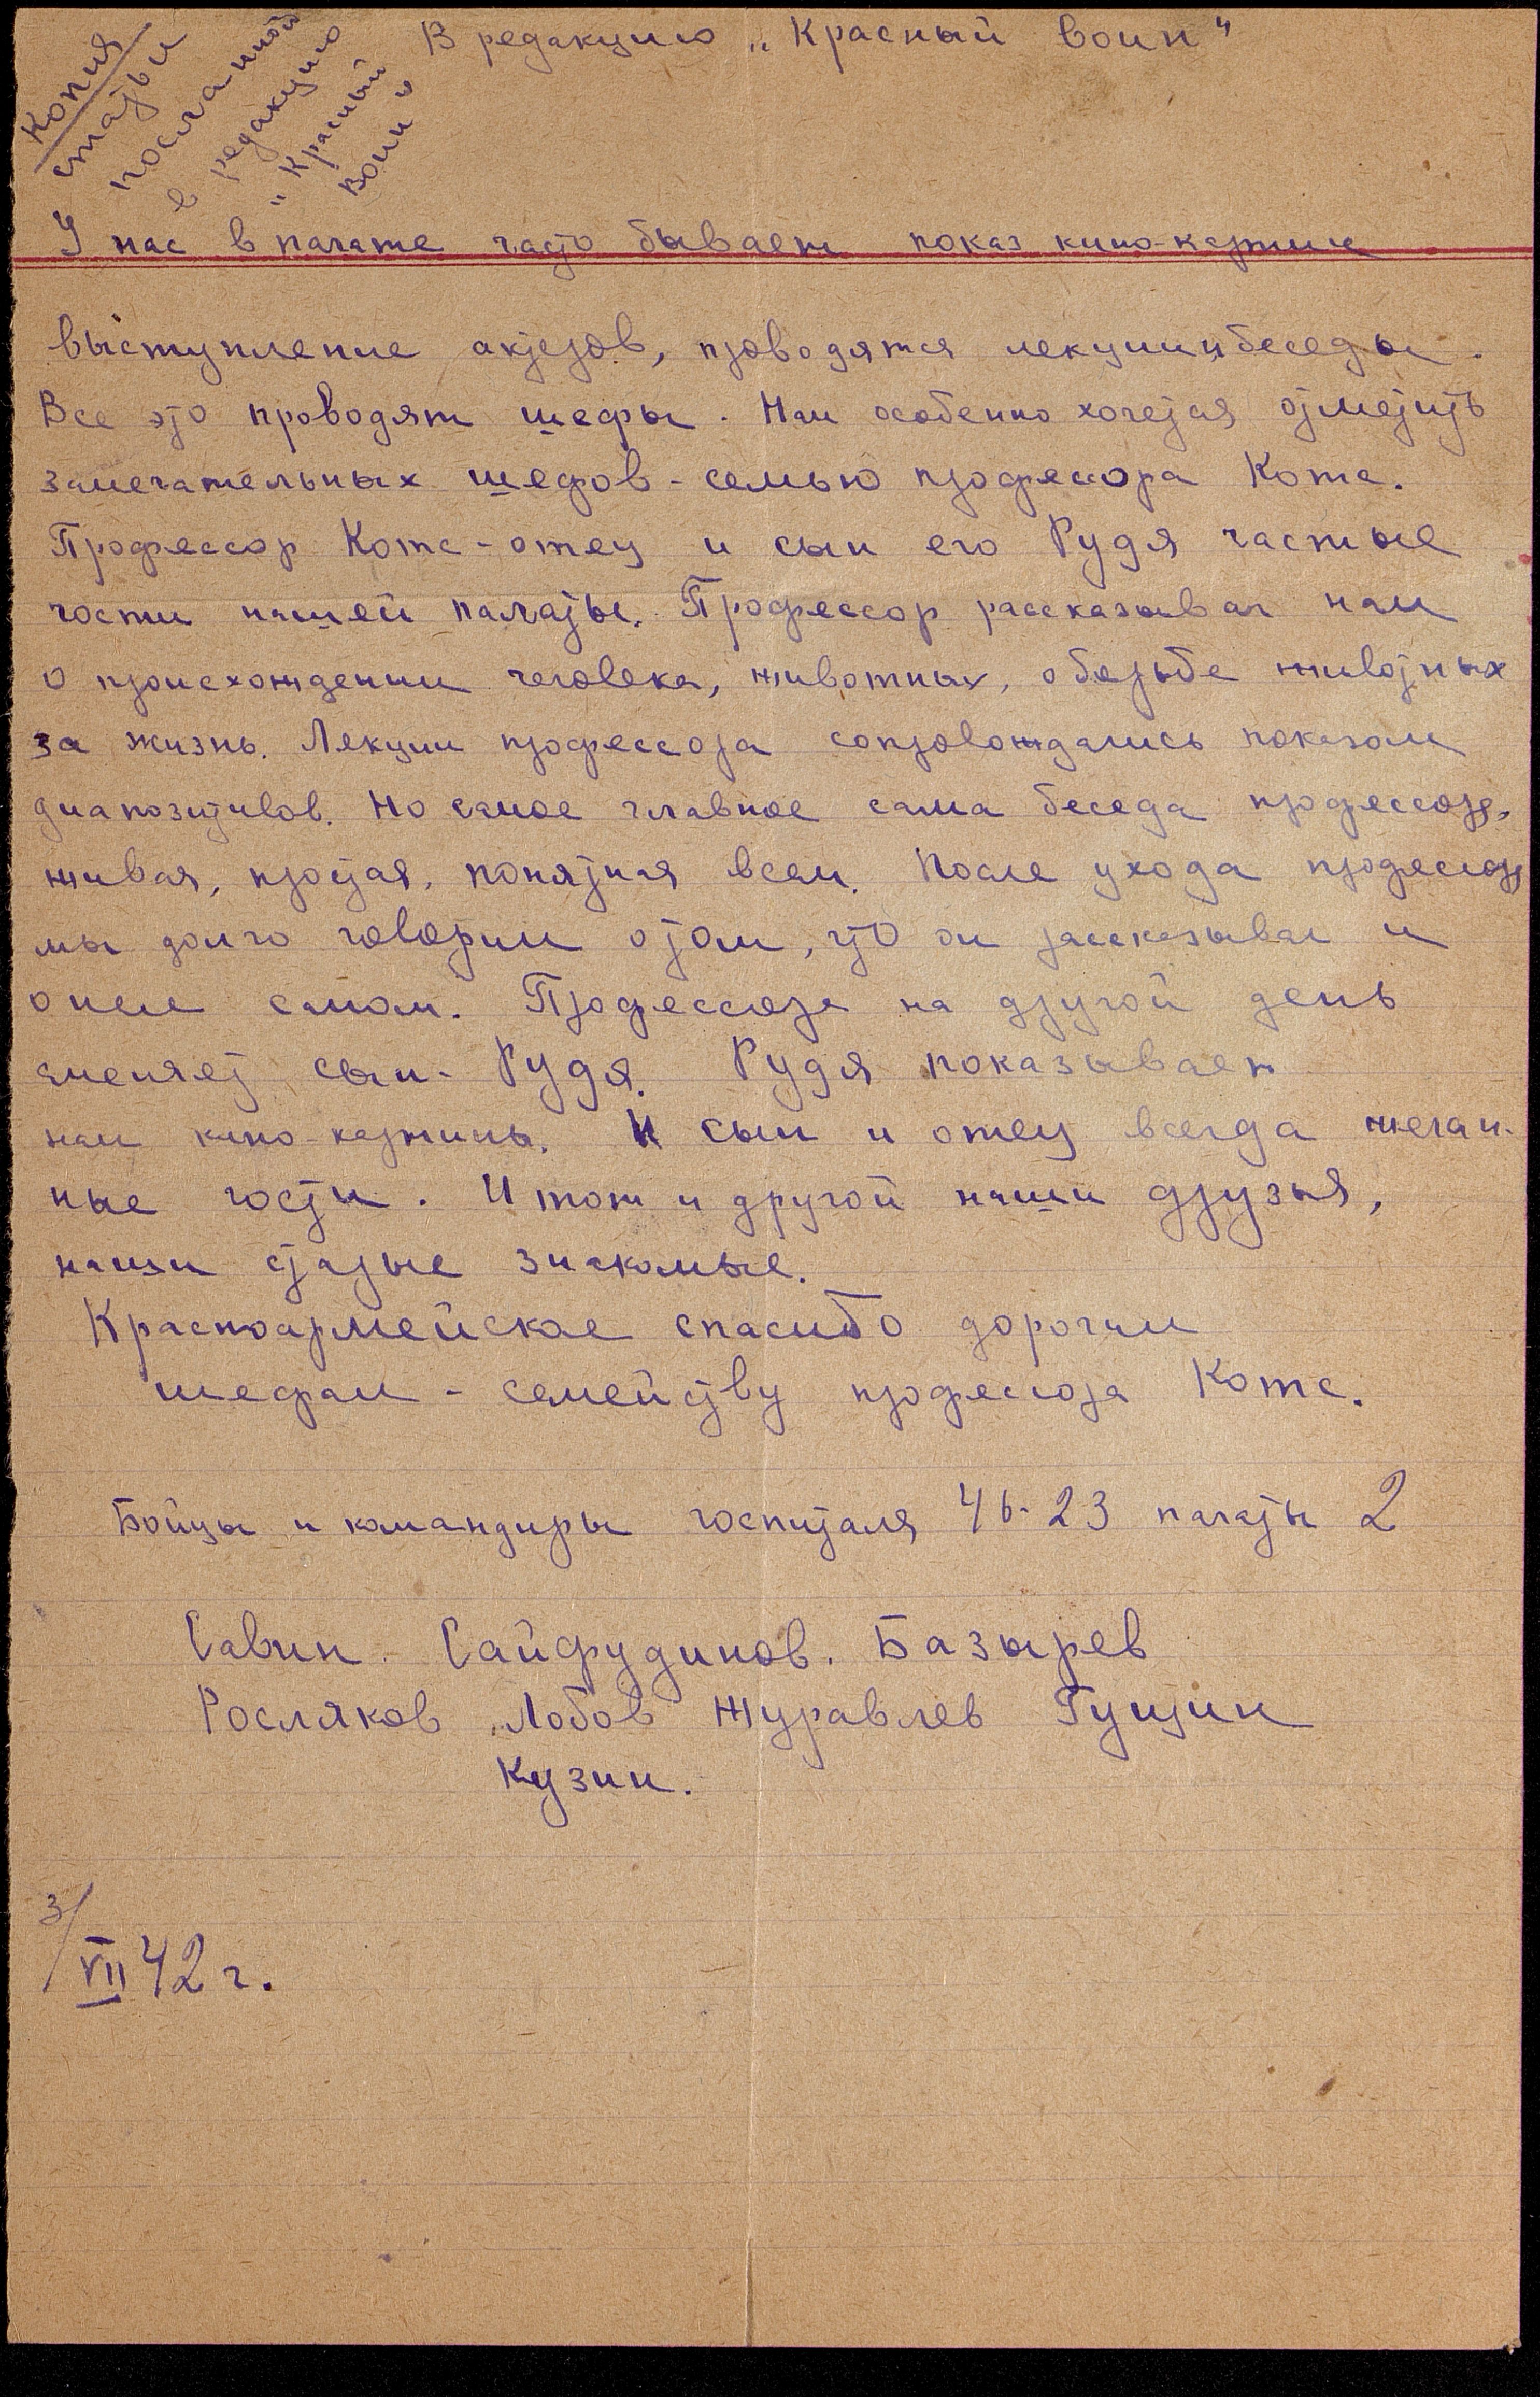 Копия
статьи
посланной
в редакцию
„Красный
Воин"
В редакцию „Красный воин"
У нас в палате часто бывает показ кино-картин
выступление актеров, проводятся лекции и беседы.
Все это проводят шефы. Нам особенно хочется отметить
замечательных шефов - семью профессора Котс.
Профессор Котс - отец и сын его Рудя частые
гости нашей палаты. Профессор рассказывал нам
о происхождении человека, животных, о борьбе животных
за жизнь. Лекции профессора сопровождались показом
диапозитивов. Но самое главное сама беседа профессора,
живая, простая, понятная всем. После ухода профессора
мы долго говорим о том, что он рассказывал и
о нем самом. Профессора на другой день
сменяет сын - Рудя. Рудя показывает
нам кино-картины. И сын и отец всегда желан-
ные гости. И тот и другой наши друзья,
наши старые знакомые.
Красноармейское спасибо дорогим
шефам - семейству профессора Котс.
Бойцы и командиры госпиталя 46-23 палаты 2
Савин. Сайфудинов. Базырев
Росляков Лобов Журавлев Гущин
Кузин.
3/VII 42 г.